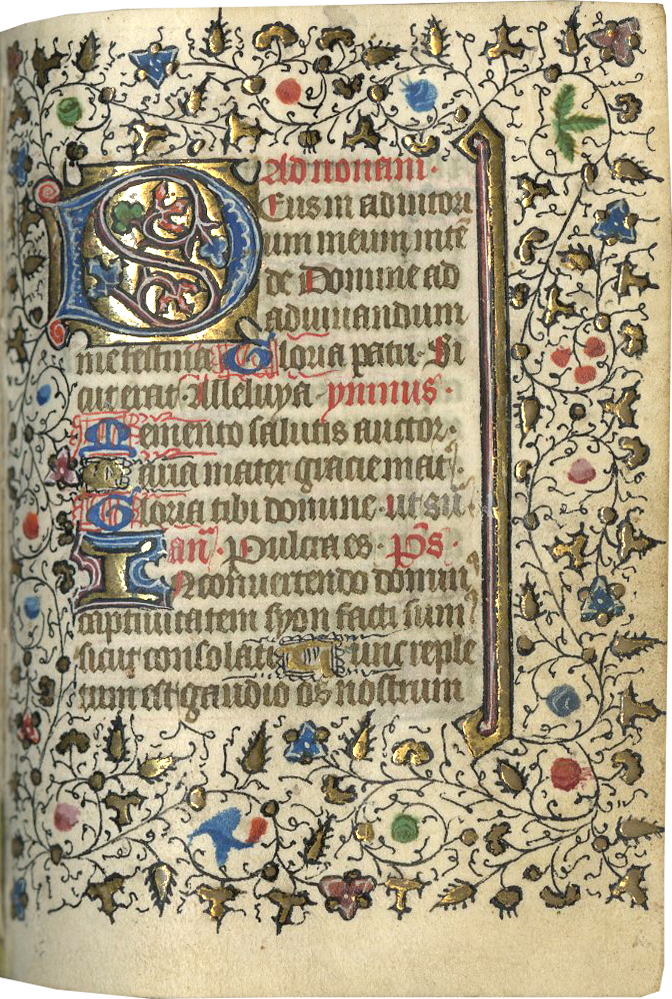 Ad nonam·
Deus in adiutori
um meum intē
de Domine ad
adiuuandum
me festina Gloria patri· Si
cut erat Alleluya ymnus·
Memento salutis auctor·
Maria mater gracie mat̄·
Gloria tibi domine· ut sū
an̄· Pulcra es· Ps̄·
In conuertendo domin
captiuitatem syon facti sum
sicut consolati Tunc reple
tum est gaudio os nostrum